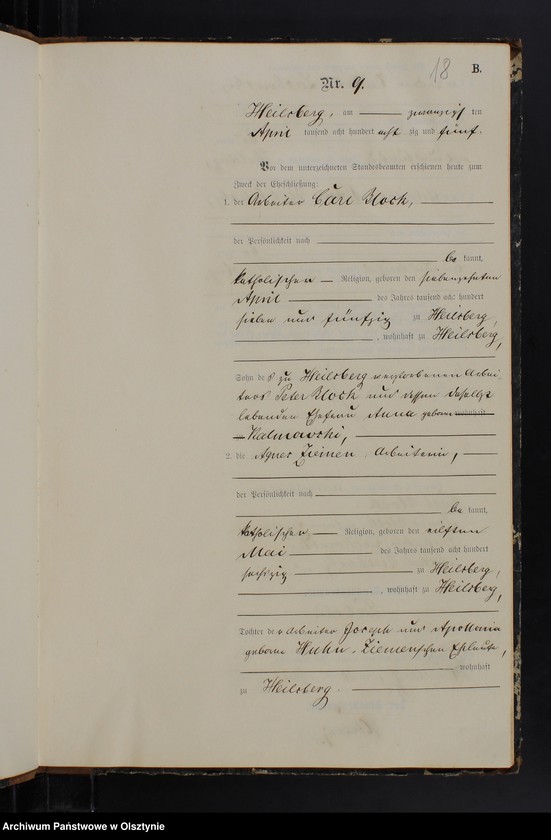 18
B.
Nr. 9.
Heilsberg, am zwanzigsten
April tausend acht hundert acht zig und fünf.
Vor dem unterzeichneten Standesbeamten erschienen heute zum
Zweck der Eheschließung:
1. der Arbeiter Carl Block,
der Persönlichkeit nach
be kannt,
katholischen Religion, geboren den siebenzehnten
April des Jahres tausend acht hundert
sieben und fünfzig zu Heilsberg,
, wohnhaft zu Heilsberg,
Sohn des zu Heilsberg verstorbenen Arbei-
ters Peter Block und dessen daselbst
lebenden Ehefrau Anna geborene wohnhaft
zu
2. die Agnes Ziemen, Arbeiterin,
der Persönlichkeit nach
be kannt,
katholischen Religion, geboren den eilften
Mai des Jahres tausend acht hundert
sechszig zu Heilsberg,
, wohnhaft zu Heilsberg,
Tochter der Arbeiter Joseph und Apollonia
geborne Huhn-Ziemenschen Eheleute,
wohnhaft
zu Heilsberg.
Archiwum Państwowe w Olsztynie